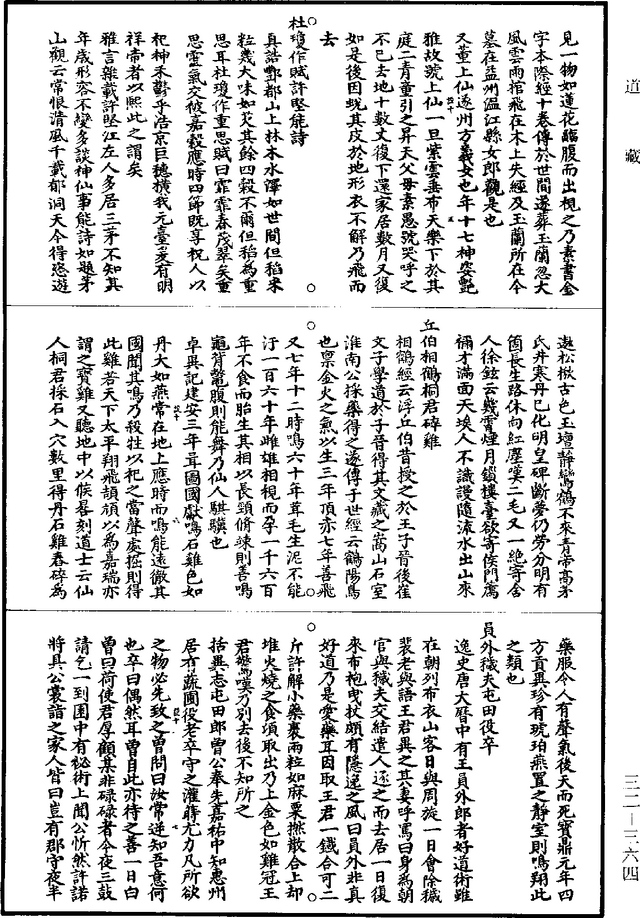 道藏
三二—三六四
見一物如蓮花臨腹而出視之乃素書金
字本際經十卷傳於世間遂葬玉蘭忽大
風雲雨棺飛在木上失經及玉蘭所在今
墓在益州溫江縣女郎觀是也
又董上仙遂州方義女也年十七神姿艷
雅故號上仙一旦紫雲垂布天樂下於其
庭二青童引之昇天父母素愚號哭呼之
不已去地十數丈復下還家居數月又復
如是後因蛻其皮於地形衣不解乃飛而
去
杜瓊作賦許堅能詩
真誥酆都山上林木水澤如世間但稻米
粒幾大味如芡其餘四穀不爾但稻為重
思耳杜瓊作重思賦曰霏霏春茂翠矣重
思靈氣交被嘉穀應時四節既享祝人以
祀神禾鬱乎浩京巨穗橫我元臺爰有明
祥帝者以熙此之謂矣
雅言雜載許堅江左人多居三茅不知其
年歲形容不變多談神仙事能詩如題茅
山觀云常恨清風千載郁洞天今得恣遊
遨松楸古色玉壇靜鸞鶴不來青帝高茅
氏井寒丹已化明皇碑斷夢仍勞分明有
箇長生路休向紅塵嘆二毛又一絶寄舍
人徐鉉云幾宵煙月鎖樓臺欲寄侯門薦
禰才滿面天埃人不識謾隨流水出山來
丘伯相鶴桐君碎雞
相鶴經云浮丘伯昔授之於王子晉後崔
文子學道於子晉得其文藏之嵩山石室
淮南公採藥得之遂傳于世經云鶴陽鳥
也禀金火之氣以生三年頂赤七年善飛
又七年十二時鳴六十年茸毛生泥不能
汙一百六十年雌雄相視而孕一千六百
年不食而胎生其相以長頸脩竦則善鳴
龜背鼈腹則能舞乃仙人騏驥也
卓異記建安三年胥圖國獻鳴石雞色如
丹大如燕常在地上應時而鳴能遠徹其
國聞其鳴乃殺牲以祀之當聲處掘則得
此雞若天下太平翔飛頡頏以為嘉瑞亦
謂之寶雞又聽地中以候晷刻道士云仙
人桐君採石入穴數里得丹石雞舂碎為
藥服令人有聲氣後天而死寶鼎元年四
方貢異珍有琥珀燕置之靜室則鳴翔此
之類也
員外穢夫屯田役卒
逸史唐大曆中有王員外郎者好道術雖
在朝列布衣山客日與周旋一日會除穢
裴老與語王君異之其妻呼罵曰身為朝
官與穢夫交結遣人逐之而去居一日復
來布袍曳杖頗有隱逸之風曰員外非真
好道乃是愛藥耳因取王君一鐵合可二
斤許解小藥裹兩粒如麻粟撚散合上却
堆火燒之食頃取出乃上金色如雞冠王
君驚嘆乃别去後不知所之
括異志屯田郎曾公奉先嘉祐中知惠州
居有蔬圃役老卒守之灌蒔尤力凡所欲
之物必先致之曾問曰汝常逆知吾意何
也卒曰偶然耳曾自此亦待之善一日白
曾曰荷使君厚顧某非碌碌者今夜三鼓
請乞一到圃中有秘術上聞公忻然許諾
將具公裳詣之家人皆曰豈有郡守夜半